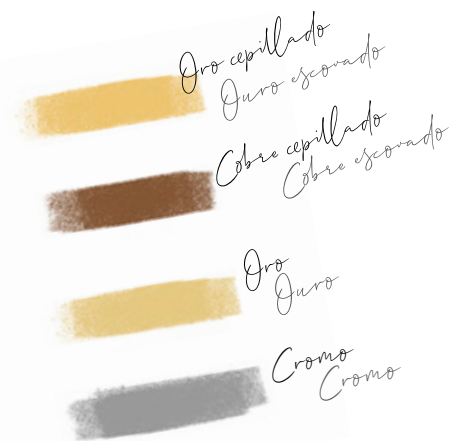 Oro cepillado
Ouro escovado
Cobre cepillado
Cobre escovado
Oro
Ouro
Cromo
Cromo